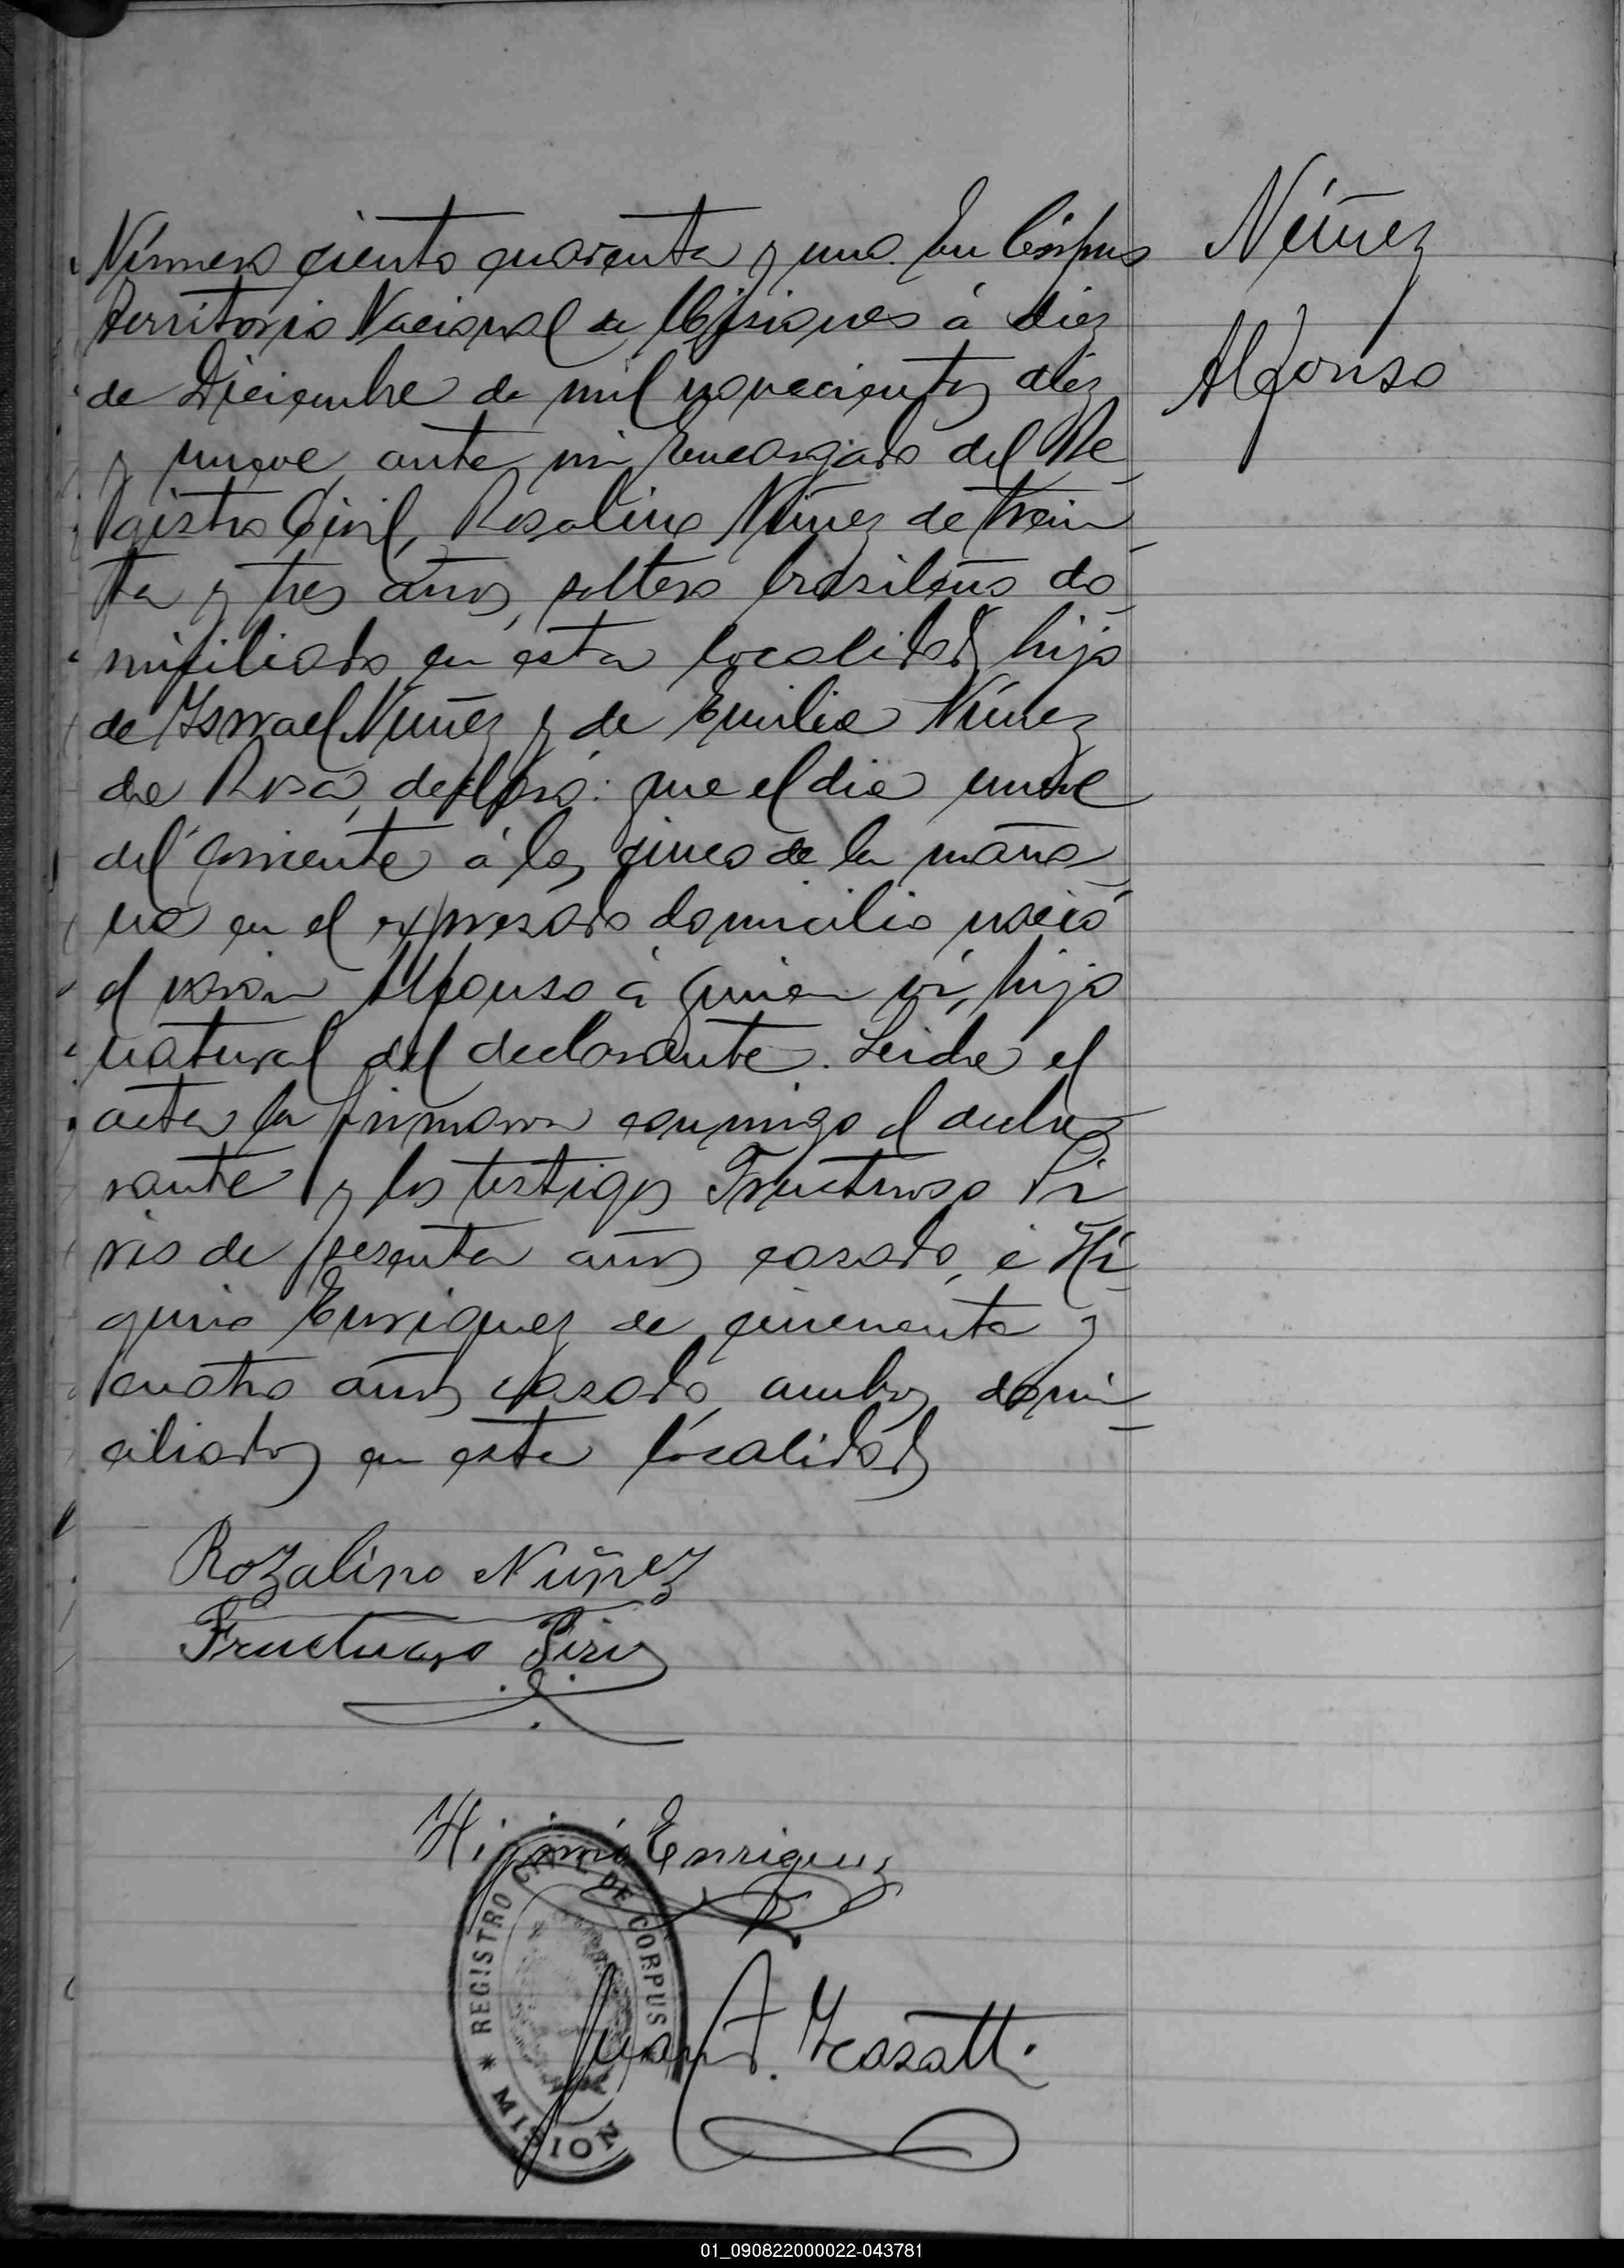 Número ciento cuarenta y uno. En Córpus
Territorio Nacional de Misiones á diez
de Diciembre de mil novecientos diez
y nueve, ante mi Encargado del Re
gistro Civil, Rosalino Núñez de trein
ta y tres años, soltero brasileño do
miciliado en esta localidad, hijo
de Israel Núñez y de Emilia Núñez
de Rosa, declaró: que el dia nueve
del corriente á las cinco de la maña
na en el expresado domicilio nació
el varon Alfonso á quien vi, hijo
natural del declarante. Leida el
acta la firmaron conmigo el decla
rante y los testigos Fructuoso Pi
ris de sesenta años casado, é Hi
ginio Enriquez de cincuenta y
cuatro años casado, ambos domi
ciliados en esta localidad
Núñez
Alfonso
Rozalino Núñez
Fructuoso Piris
Higinio Enriquez
REGISTRO CIVIL DE CORPUS
* MISION
Juan
01_090822000022-043781